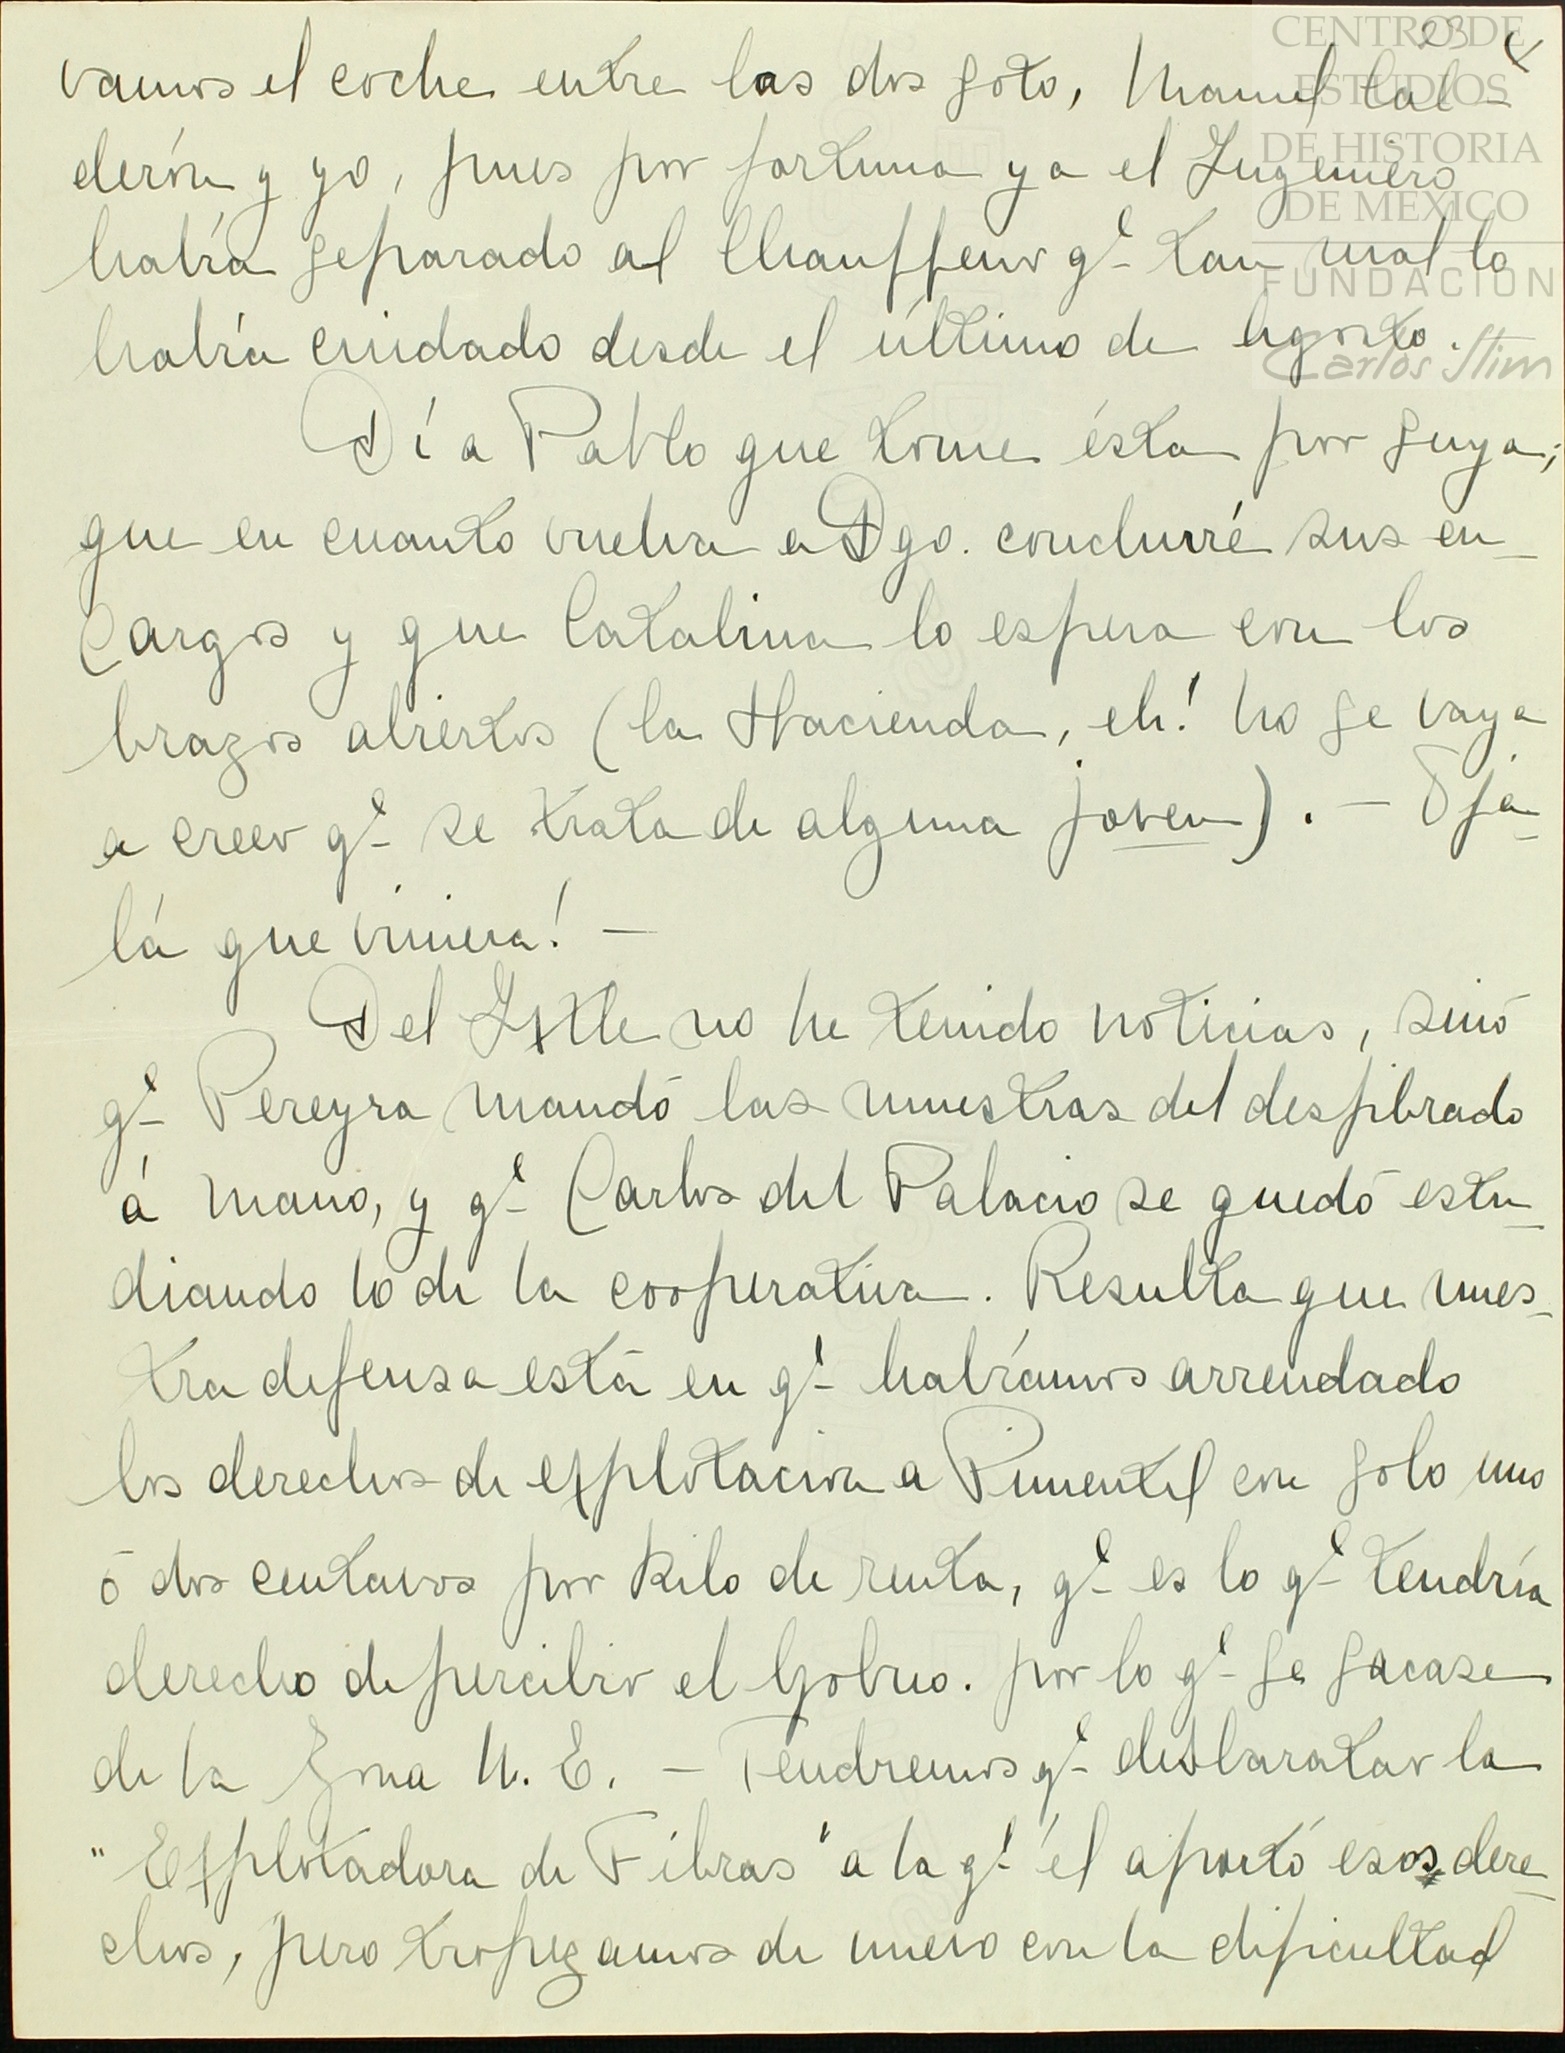 CENTRO DE
ESTUDIOS
DE HISTORIA
DE MEXICO
FUNDACION
Carlos Slim
23
vamos el coche entre los dos Soto, Manuel Cal-
derón y yo, pues por fortuna ya el Ingeniero
había separado al Chauffeur qe. tan mal lo
había cuidado desde el último de Agosto.
Dí a Pablo que tome ésta por suya;
que en cuanto vuelva a Dgo. concluiré sus en-
cargos y que Catalina lo espera con los
brazos abiertos (la Hacienda, eh! no se vaya
a creer qe. se trata de alguna joven). — Oja-
lá que viniera! —
Del Ixtle no he tenido noticias, sinó
qe. Pereyra mandó las muestras del desfibrado
á mano, y qe. Carlos del Palacio se quedó estu-
diando lo de la cooperativa. Resulta que nues-
tra defensa está en qe. habíamos arrendado
los derechos de explotacion a Pimentel con solo uno
ó dos centavos por kilo de renta, qe. es lo qe. tendría
derecho de percibir el Gobno. por lo qe. se sacase
de la Zona N. E. — Tendremos qe. desbaratar la
"Explotadora de Fibras" a la qe. él aportó esos dere-
chos, pero tropezamos de nuevo con la dificultad